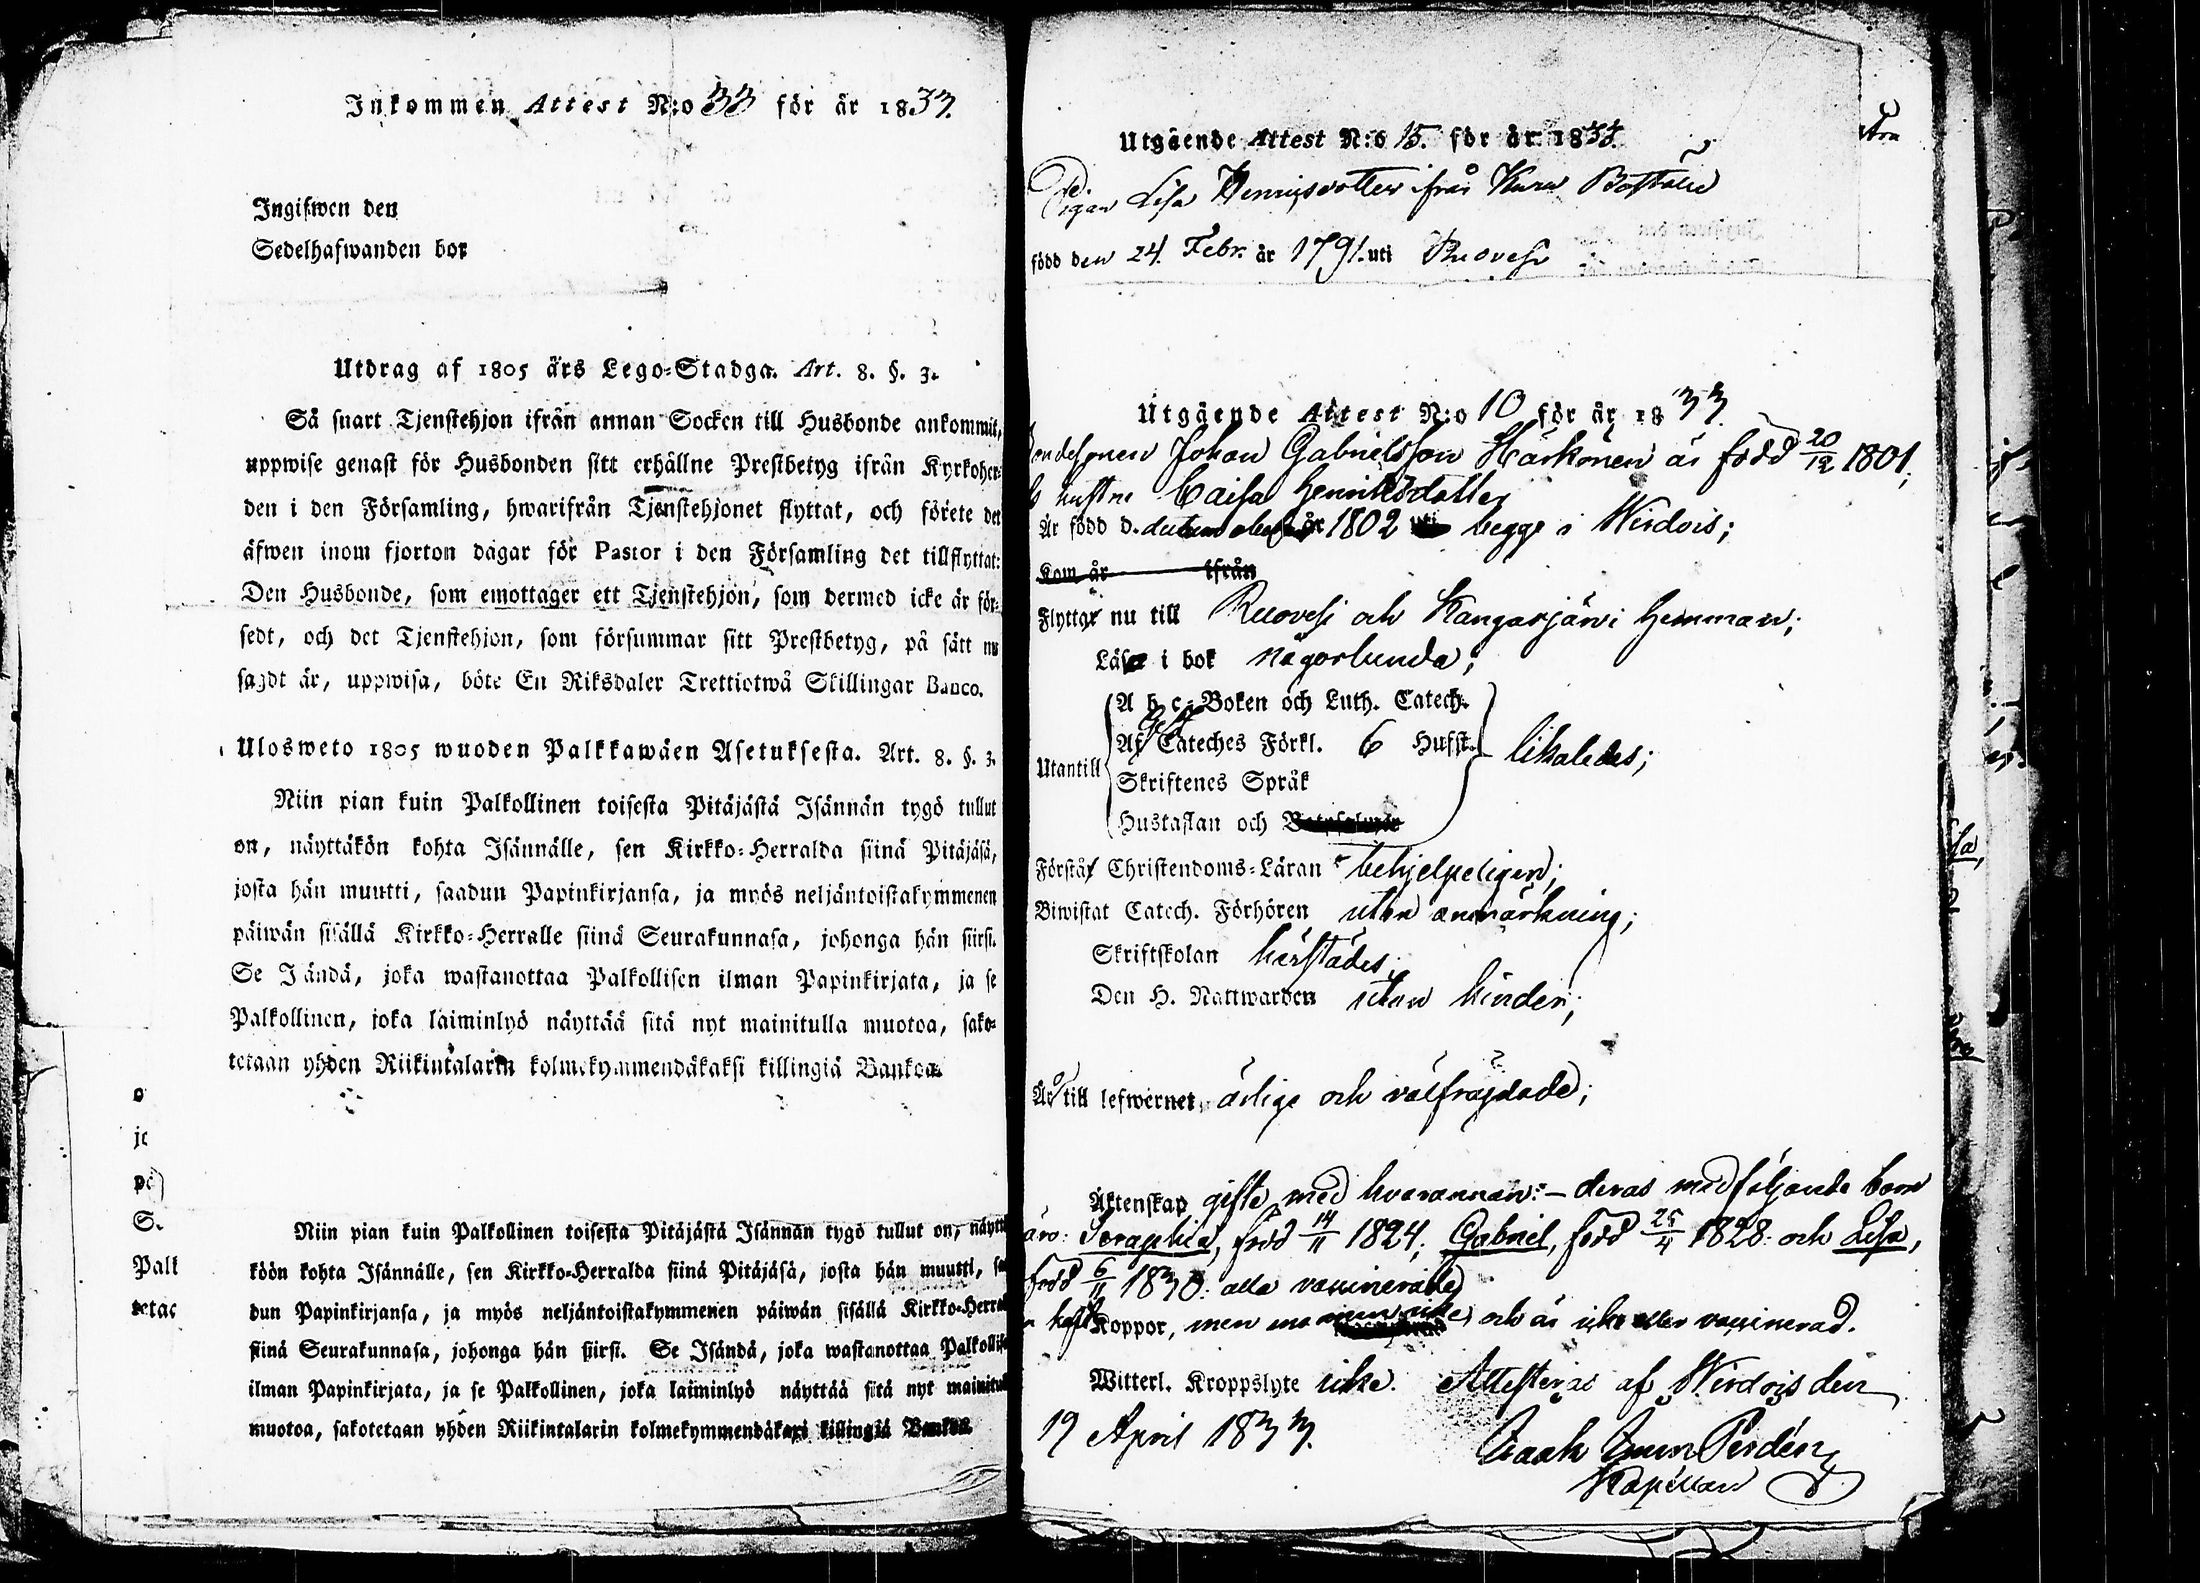 Inkommen Attest N:o 33 för år 1833.
Ingifwen den
Sedelhafwanden bor
Utdrag af 1805 års Lego-Stadga. Art. 8. §. 3.
Så snart Tjenstehjon ifrån annan Socken till Husbonde ankommit,
uppwise genast för Husbonden sitt erhållne Prestbetyg ifrån Kyrkoher-
den i den Församling, hwarifrån Tjenstehjonet flyttat, och förete det
äfwen inom fjorton dagar för Pastor i den Församling det tillflyttat:
Den Husbonde, som emottager ett Tjenstehjon, som dermed icke är för-
sedt, och det Tjenstehjon, som försummar sitt Prestbetyg, på sätt nu
sagdt är, uppwisa, böte En Riksdaler Trettiotwå Skillingar Banco.
Ulosweto 1805 wuoden Palkkawäen Asetuksesta. Art. 8. §. 3.
Niin pian kuin Palkollinen toisesta Pitäjästä Isännän tygö tullut
on, näyttäkön kohta Isännälle, sen Kirkko-Herralda siinä Pitäjäsä,
josta hän muutti, saadun Papinkirjansa, ja myös neljäntoistakymmenen
päiwän sisällä Kirkko-Herralle siinä Seurakunnasa, johonga hän siirsi.
Se I ändä, joka wastanottaa Palkollisen ilman Papinkirjata, ja se
Palkollinen, joka laiminlyö näyttää sitä nyt mainitulla muotoa, sako-
tetaan yhden Riikintalarin kolmekymmendäkaksi killingiä Bankoa.
o
jo
pä
S.
Palk
tetac
Niin pian kuin Palkollinen toisesta Pitäjästä Isännän tygö tullut on, näytt
köön kohta Isännälle, sen Kirkko-Herralda siinä Pitäjäsä, josta hän muutti, sa
dun Papinkirjansa, ja myös neljäntoistakymmenen päiwän sisällä Kirkko-Herral
siinä Seurakunnasa, johonga hän siirsi. Se Isändä, joka wastanottaa Palkollis
ilman Papinkirjata, ja se Palkollinen, joka laiminlyö näyttää sitä nyt mainitul
muotoa, sakotetaan yhden Riikintalarin kolmekymmendäkaxi killingiä Bankoa.
Utgående Attest N:o 15. för år 1833.
Pigan Lisa Henricsdotter ifrån Kuru Boställe
född den 24. Febr. år 1791. uti Ruovesi
Utgående Attest N:o 10 för år 1833.
Bondesonen Johan Gabrielsson Härkönen är född 20/12 1801;
hustru Caisa Henriksdotter
Är född d. år 1802 begge i Wirdois;
Kom år ifrån
Flyttar nu till Ruovesi och Kangasjärvi hemman;
Läsa i bok någorlunda;
Utantill
A b c-Boken och Luth. Catech.
Af Cateches Förkl. 6 Hufst. likaledes;
Skriftenes Språk
Hustaflan och Botpsalmer
Förstå Christendoms-Läran behjelpeligen;
Biwistat Catech. Förhören utan anmärkning;
Skriftskolan härstädes;
Den H. Nattwarden utan hinder;
Är till lefwernet ärlige och välfrägdade;
Äktenskap gifte med hvarannan: – deras medföljande barn
äro: Seraphia, född 14/11 1824; Gabriel, född 25/4 1828: och Lisa,
född 6/11 1830: alla vaccinerade
haft Koppor, men och är icke eller vaccinerad.
Witterl. Kroppslyte icke. Attesteras af Wirdois den
19 April 1833.
Isaak Perdén
Kapellan